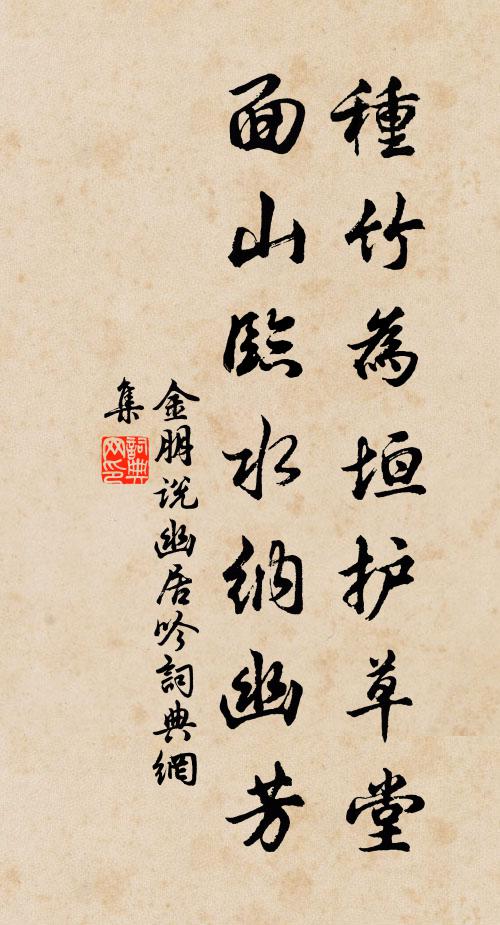 種竹為垣护草堂
面山臨水納幽芳
金朋說幽居吟詞典網
集
詞典
网印